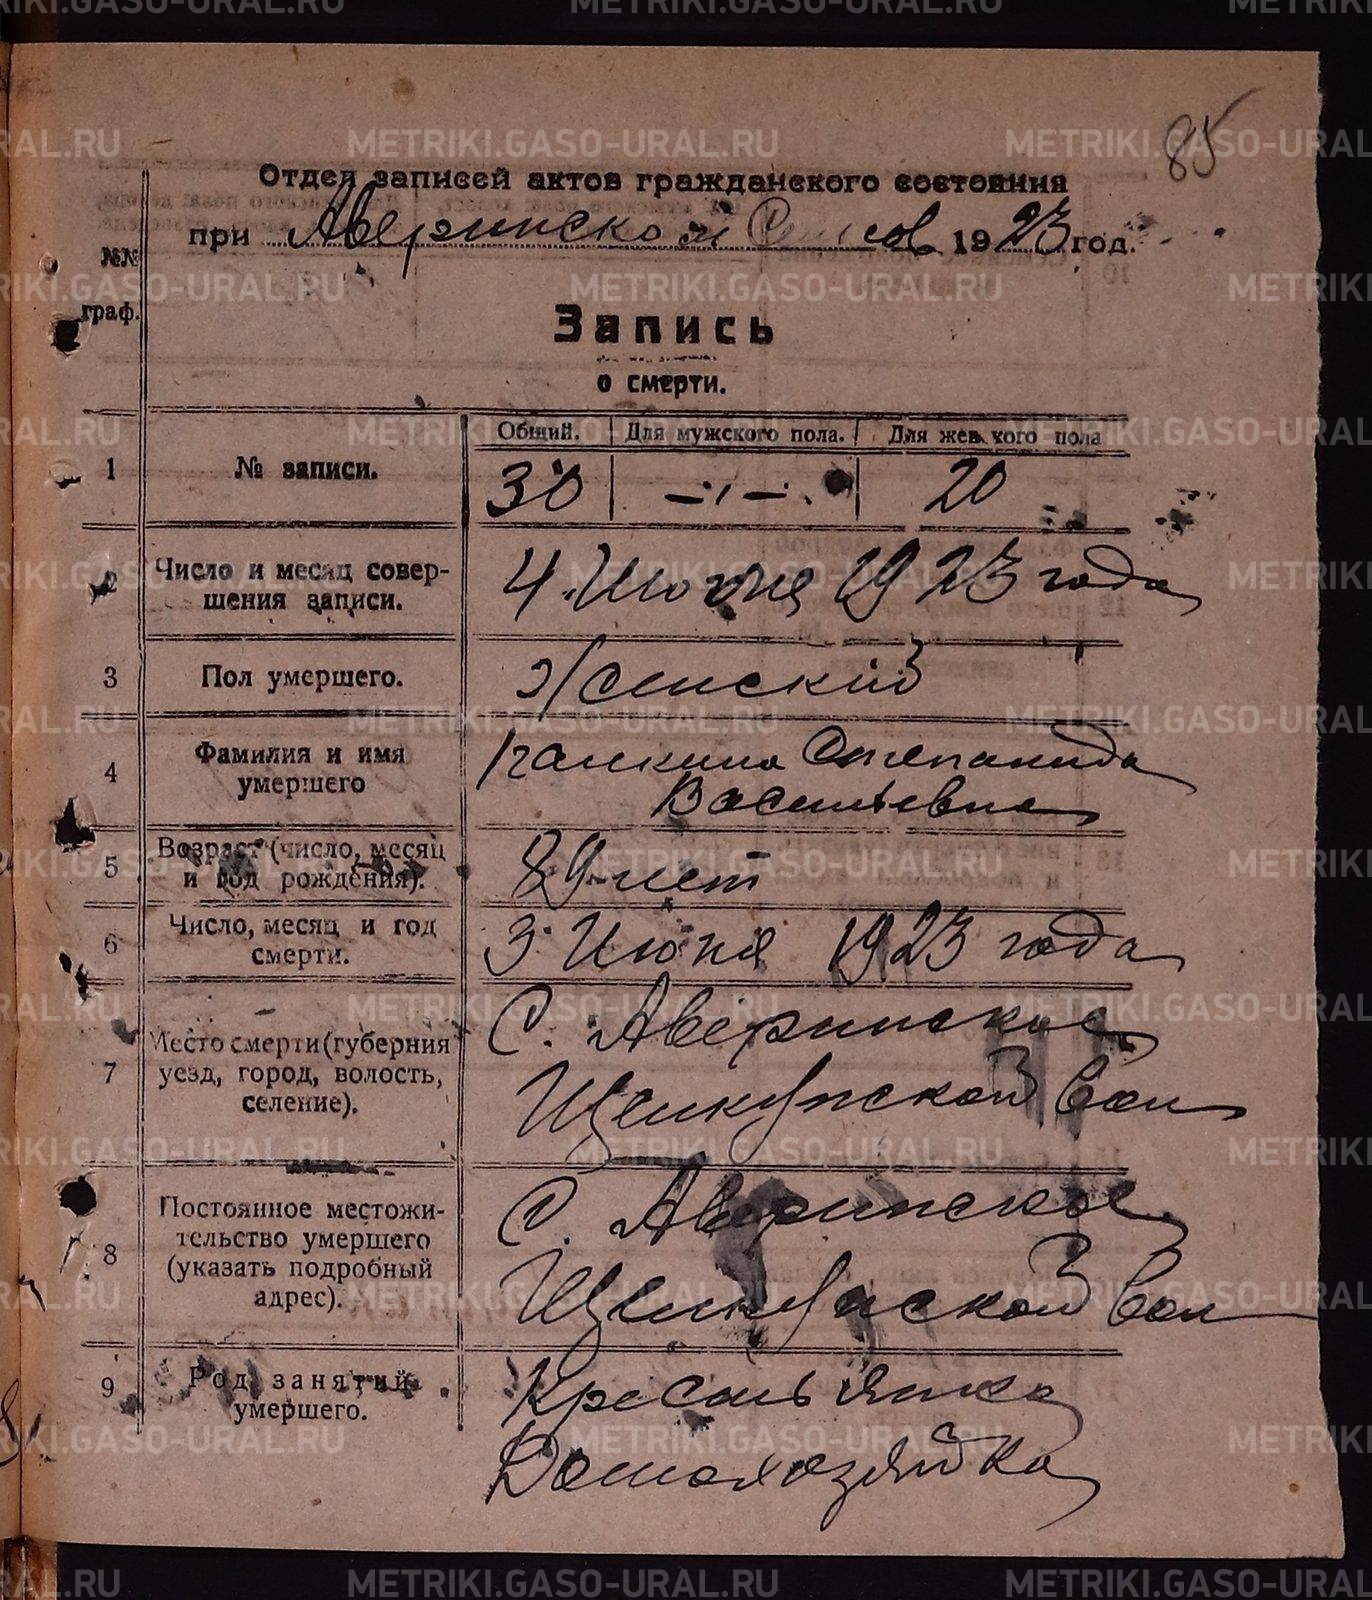 85
Отдел записей актов гражданского состояния
при Аверинском 1923 год.
№№ граф.
Запись
о смерти.
Общий. Для мужского пола. Для женского пола
1 № записи. 30 — 20
2 Число и месяц совер-
шения записи. 4 Июня 1923 года
3 Пол умершего. Женский
4 Фамилия и имя
умершего Степанида
Васильевна
5 Возраст (число, месяц
и год рождения). 89 лет
6 Число, месяц и год
смерти. 3 Июня 1923 года
7 Место смерти (губерния
уезд, город, волость,
селение). С. Аверинское
Щелкунской Вол
8 Постоянное местожи-
тельство умершего
(указать подробный
адрес). С. Аверинское
Щелкунской Вол
9 Род занятий
умершего. Крестьянка
Домохозяйка
METRIKI.GASO-URAL.RU